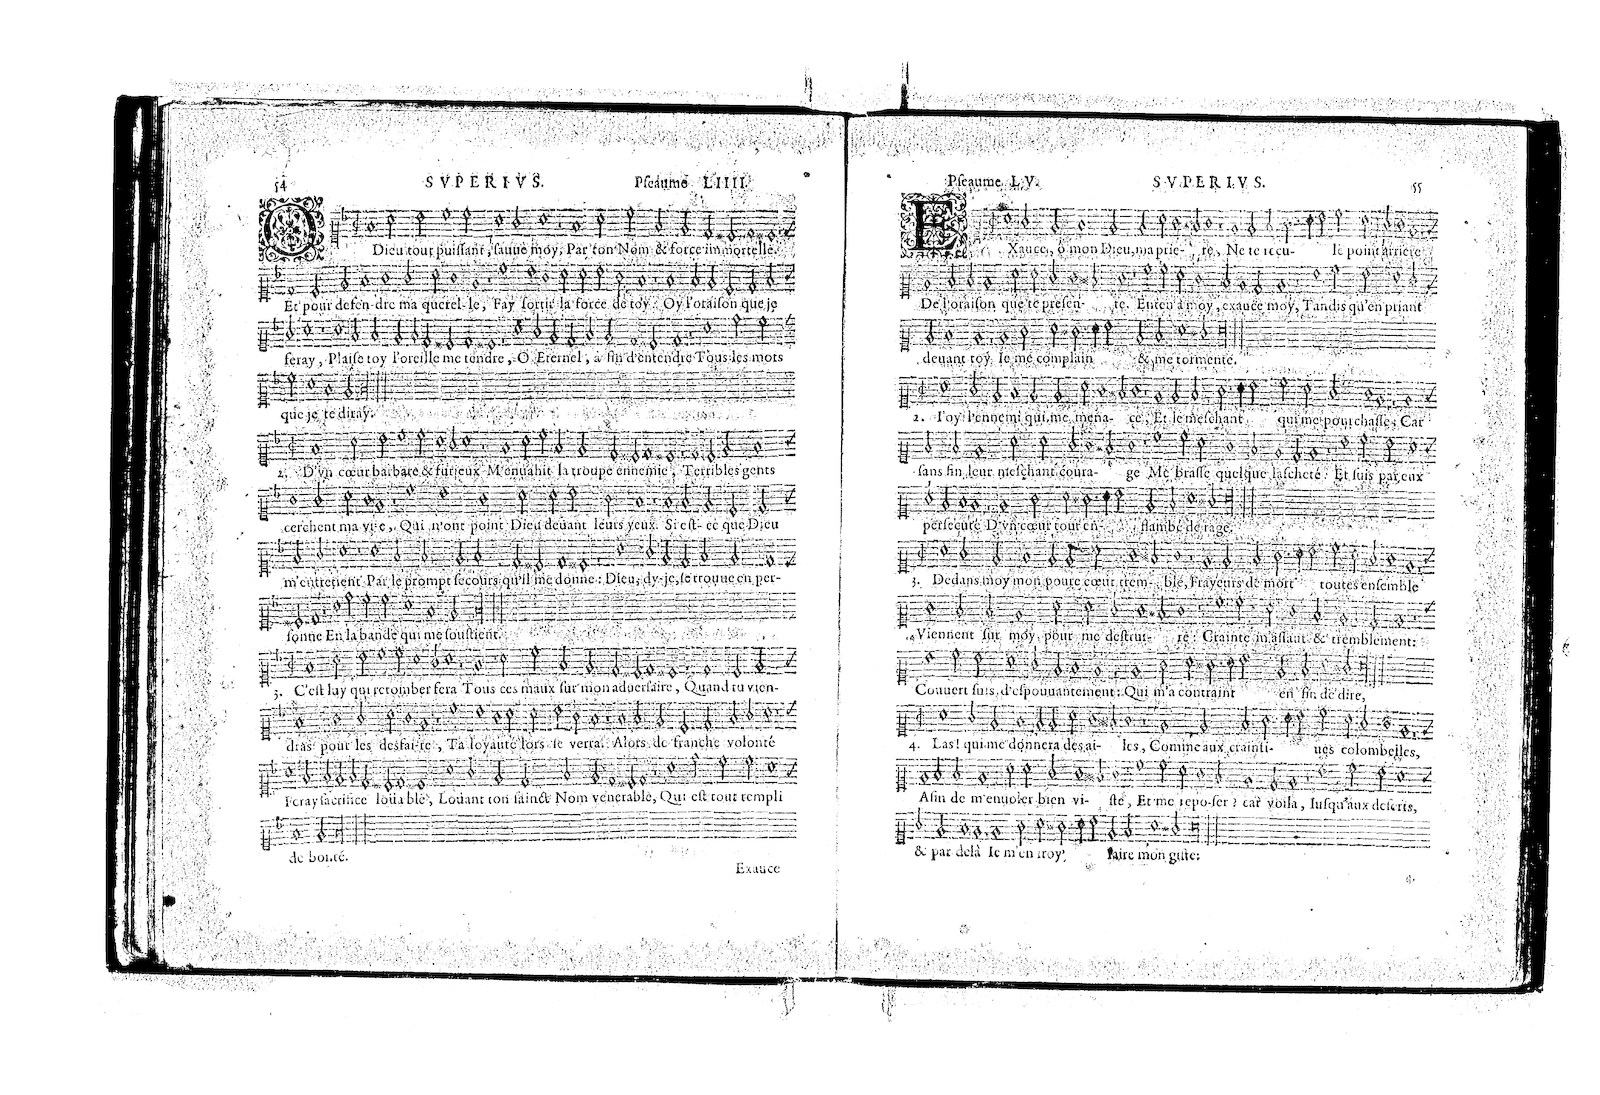 54 SVPERIVS. Pseaume LIIII.
O Dieu tout puissant, sauue moy, Par ton Nom & force immortelle.
Et pour defen-dre ma querel-le, Fay sortir la force de toy: Oy l'oraison que je
feray, Plaise toy l'oreille me tendre, O Eternel, a fin d'entendre Tous les mots
que je te diray.
2. D'vn cœur barbare & furieux M'enuahit la troupe ennemie, Terribles gents
cerchent ma vi-e, Qui n'ont point Dieu deuant leurs yeux. Si est-ce que Dieu
m'entretient Par le prompt secours qu'il me donne: Dieu, dy-je, se trouue en per-
sonne En la bande qui me soustient.
3. C'est luy qui retomber fera Tous ces maux sur mon aduersaire, Quand tu vien-
dras pour les desfai-re, Ta loyauté lors se verra. Alors de franche volonté
Feray sacrifice louable, Louant ton sainct Nom venerable, Qui est tout rempli
de bonté.
Exauce
Pseaume LV. SVPERIVS. 55
EXauce, ô mon Dieu, ma prie- re, Ne te recu- le point arriere
De l'oraison que te presen- te. Enten à moy, exauce moy, Tandis qu'en priant
deuant toy Ie me complain & me tormente.
2. I'oy l'ennemi qui me mena- ce, Et le meschant qui me pourchasse, Car
sans fin leur meschant coura- ge Me brasse quelque lascheté: Et suis par eux
persecuté D'vn cœur tout en- flambé de rage.
3. Dedans moy mon poure cœur trem- ble, Frayeurs de mort toutes ensemble
Viennent sur moy pour me destrui- re: Crainte m'assaut & tremblement:
Couuert suis d'espouuantement: Qui m'a contraint en fin de dire,
4. Las! qui me donnera des ai- les, Comme aux crainti- ues colombelles,
Afin de m'enuoler bien vi- ste, Et me repo-ser? car voila, Iusqu'aux deserts,
& par delà Ie m'en iroy faire mon giste: